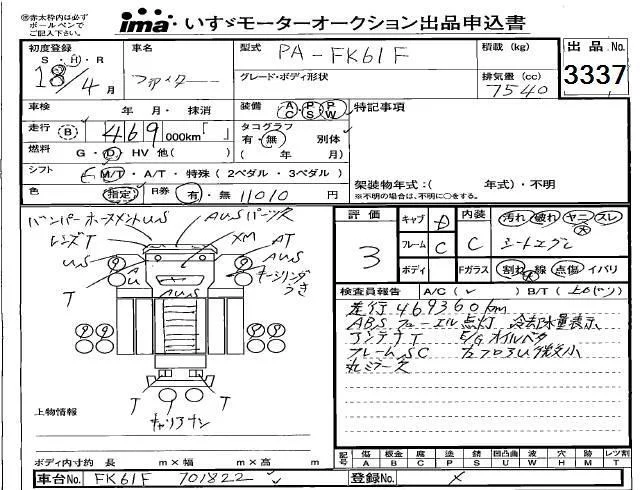 ※赤太枠内は必ず
ボールペンで
ご記入下さい。
ima いすゞモーターオークション出品申込書
初度登録
S・H・R
18/4月
車名
ファイター
型式
PA-FK61F
積載(kg)
出品No.
3337
グレード・ボディ形状
排気量(cc)
7540
車検
年 月・ 抹消
装備
AC PS PW
特記事項
走行
B 469,000km「 」
タコグラフ
有・無 別体
( 年 月)
燃料
G・D・HV 他( )
シフト
M/T・A/T・特殊(2ペダル・3ペダル)
架装物年式:( 年式)・不明
※不明の場合は、不明に○をする。
色
(指定)
R券
有・無 11010 円
バンパーホースメントUS
AUSパーツ欠
レンズT
XM
AT
US
AU
AUS
US
T
キーシリンダ
うき
T T
T
キャリアナシ
上物情報
ボディ内寸約 長 m×幅 m×高 m
評価
3
キャブ
D
内装
汚れ 破れ ヤニ スレ
大
フレーム
C
C
シートエグレ
ボディ
Fガラス
割れ・線 点傷 イバリ
検査員報告 A/C( ✓ ) B/T(
走行469360km
ABS フューエル点灯 冷却水量表示
アンテナT E/Gオイルベタ
フレームSC
丸ミラー欠
記号
傷 A
板金 B
腐 C
塗 P
錆 S
凹凸曲 U
波 W
穴 H
跡 M
レツ割 T
車台No. FK61F 701822
登録No. ×